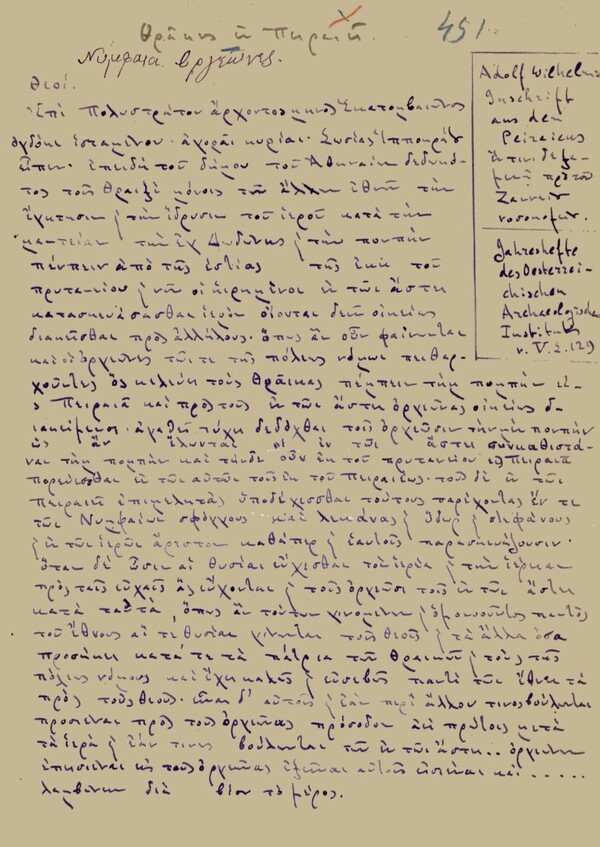 Θρᾷκες ἐν Πειραιεῖ.
451.
Νυμφαῖα. ὀργεῶνες.
Θεοί.
Ἐπὶ Πολυστράτου ἄρχοντος μηνὸς Ἑκατομβαιῶνος
ὀγδόῃ ἱσταμένου· ἀγορᾶι κυρίαι· Σωσίας Ἱπποκράτου
εἶπεν· ἐπειδὴ τοῦ δήμου τοῦ Ἀθηναίων δεδωκό-
τος τοῖς Θραιξὶ μόνοις τῶν ἄλλων ἐθνῶν τὴν
ἔγκτησιν ϗ τὴν ἵδρυσιν τοῦ ἱεροῦ κατὰ τὴν
μαντείαν τὴν ἐγ Δωδώνης ϗ τὴν πονπὴν
πένπειν ἀπὸ τῆς ἑστίας τῆς ἐκ τοῦ
πρυτανείου ϗ νῦν οἱ ἡιρημένοι ἐν τῶι ἄστει
κατασκευάσασθαι ἱερὸν οἴονται δεῖν οἰκείως
διακεῖσθαι πρὸς ἀλλήλους· ὅπως ἂν οὖν φαίνωνται
καὶ οἱ ὀργεῶνες τῶι τε τῆς πόλεως νόμωι πειθαρ-
χοῦντες ὃς κελεύει τοὺς Θρᾶικας πέμπειν τὴμ πομπὴν εἰ-
ς Πειραιᾶ καὶ πρὸς τοὺς ἐν τῶι ἄστει ὀργεῶνας οἰκείως δ-
ιακείμενοι· ἀγαθεῖ τύχει δεδόχθαι τοῖς ὀργεῶσιν τὴν μὲν πονπὴν
ὡς ἂν ἕλωνται οἱ ἐν τῶι ἄστει συνκαθιστά-
ναι τὴμ πομπὴν καὶ τήνδε οὖν ἐκ τοῦ πρυτανείου εἰς Πειραιᾶ
πορεύεσθαι ἐν τῶι αὐτῶι τοῖς ἐκ τοῦ Πειραιέως· τοὺς δὲ ἐν τῶι
Πειραιεῖ ἐπιμελητὰς ὑποδέχεσθαι τούτους παρέχοντας ἔν τε
τῶι Νυμφαίωι σφόγγους καὶ λεκάνας ϗ ὕδωρ ϗ στεφάνους
ϗ ἐν τῶι ἱερῶι ἄριστον καθάπερ ϗ ἑαυτοῖς παρασκευάζουσιν·
ὅταν δὲ ὦσιν αἱ θυσίαι εὔχεσθαι τὸν ἱερέα ϗ τὴν ἱέρειαν
πρὸς ταῖς εὐχαῖς ἃς εὔχονται ϗ τοῖς ὀργεῶσι τοῖς ἐν τῶι ἄστει
κατὰ ταὐτά, ὅπως ἂν τούτων γινομένων ϗ ὁμονοοῦντος παντὸς
τοῦ ἔθνους αἵ τε θυσίαι γίνωνται τοῖς θεοῖς ϗ τὰ ἄλλα ὅσα
προσήκει κατά τε τὰ πάτρια τῶν Θραικῶν ϗ τοὺς τῆς
πόλεως νόμους καὶ ἔχει καλῶς ϗ εὐσεβῶς παντὶ τῶι ἔθνει τὰ
πρὸς τοὺς θεούς· εἶναι δ' αὐτοῖς ϗ ἐὰν περὶ ἄλλου τινὸς βούλωνται
προσιέναι πρὸς τοὺς ὀργεῶνας πρόσοδον ἀεὶ πρώτοις μετὰ
τὰ ἱερὰ ϗ ἐάν τινες βούλωνται τῶν ἐν τῶι ἄστει.. ὀργεώνων
ἐπεισιέναι εἰς τοὺς ὀργεῶνας ἐξεῖναι αὐτοῖς εἰσιέναι καὶ .....
λαμβάνειν διὰ βίου τὸ μέρος.
Adolf Wilhelm
Inschrift
aus dem
Peiraieus
Jahreshefte
des Oesterrei-
chischen
Archaeologischen
Instituts
v. V. Σ. 129